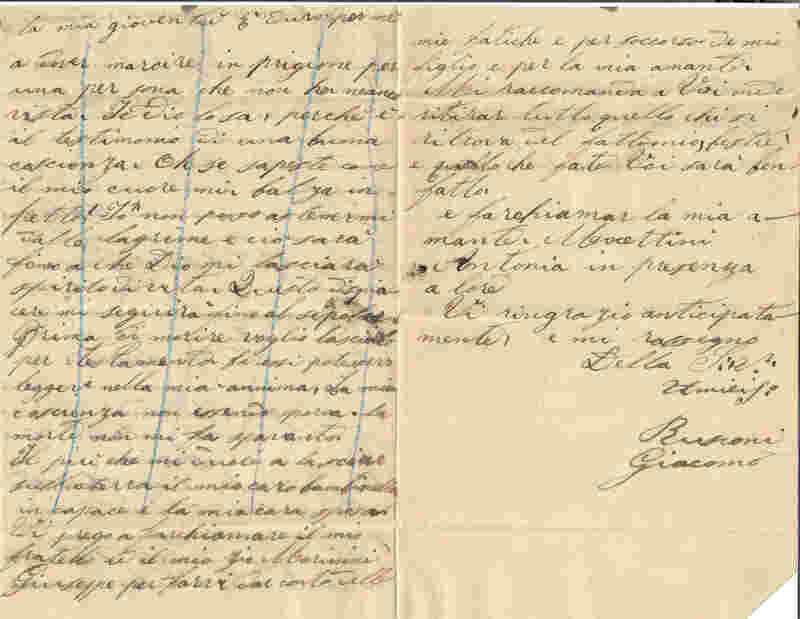 la mia gioventù È duro per me
a dover marcire in prigione per
una per sona che non ho neanc
vista. Iddio lo sa, perchè è
il testimonio di una buona
coscienza. Oh se sapeste come
il mio cuore mi balza in
petto! Io non posso astenermi
dalle lagrime e ciò sarà
fino a che Dio mi lasciarà
spirito di vita. Questo dispia
cere mi seguirà sino al sepolcro
Prima di morire voglio lasciar
per testamento
leggere nella mia annima, la mia
coscienza non essendo
morte non mi fa spavento
Il più che mi duole a lasciar
sulla terra il mio caro bambinello
in capace e la mia cara sposa
Vi prego a far chiamare il mio
fratello il mio zio
Giuseppe per farvi dar conto delle
mie fatiche e per soccorso de mio
figlio e per la mia amante
Mi raccomando a Voi
ritirar tutto quello chi si
ritrova del fatto mio, vestie
e quello che fate Voi sarà ben
fatto
e far chiamar la mia a-
mante
Antonia in presenza
a loro
Vi ringrazio anticipata
mente e mi rassegno
Della
Giacomo